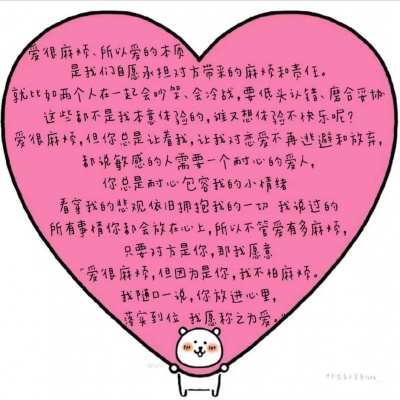 爱很麻烦、所以爱的本质
是我们自愿承担对方带来的麻烦和责任。
就比如两个人在一起会吵架、会冷战,要低头认错、磨合妥协
这些都不是我本意体验的,谁又想体验不快乐呢?
爱很麻烦,但你总是让着我,让我对恋爱不再逃避和放弃,
都说敏感的人需要一个耐心的爱人,
你总是耐心包容我的小情绪
看穿我的悲观依旧拥抱我的一切 我说过的
所有事情你都会放在心上,所以不管爱有多麻烦,
只要对方是你,那我愿意
“爱很麻烦,但因为是你,我不怕麻烦。
我随口一说,你放进心里,
落实到位 我愿称之为爱。”